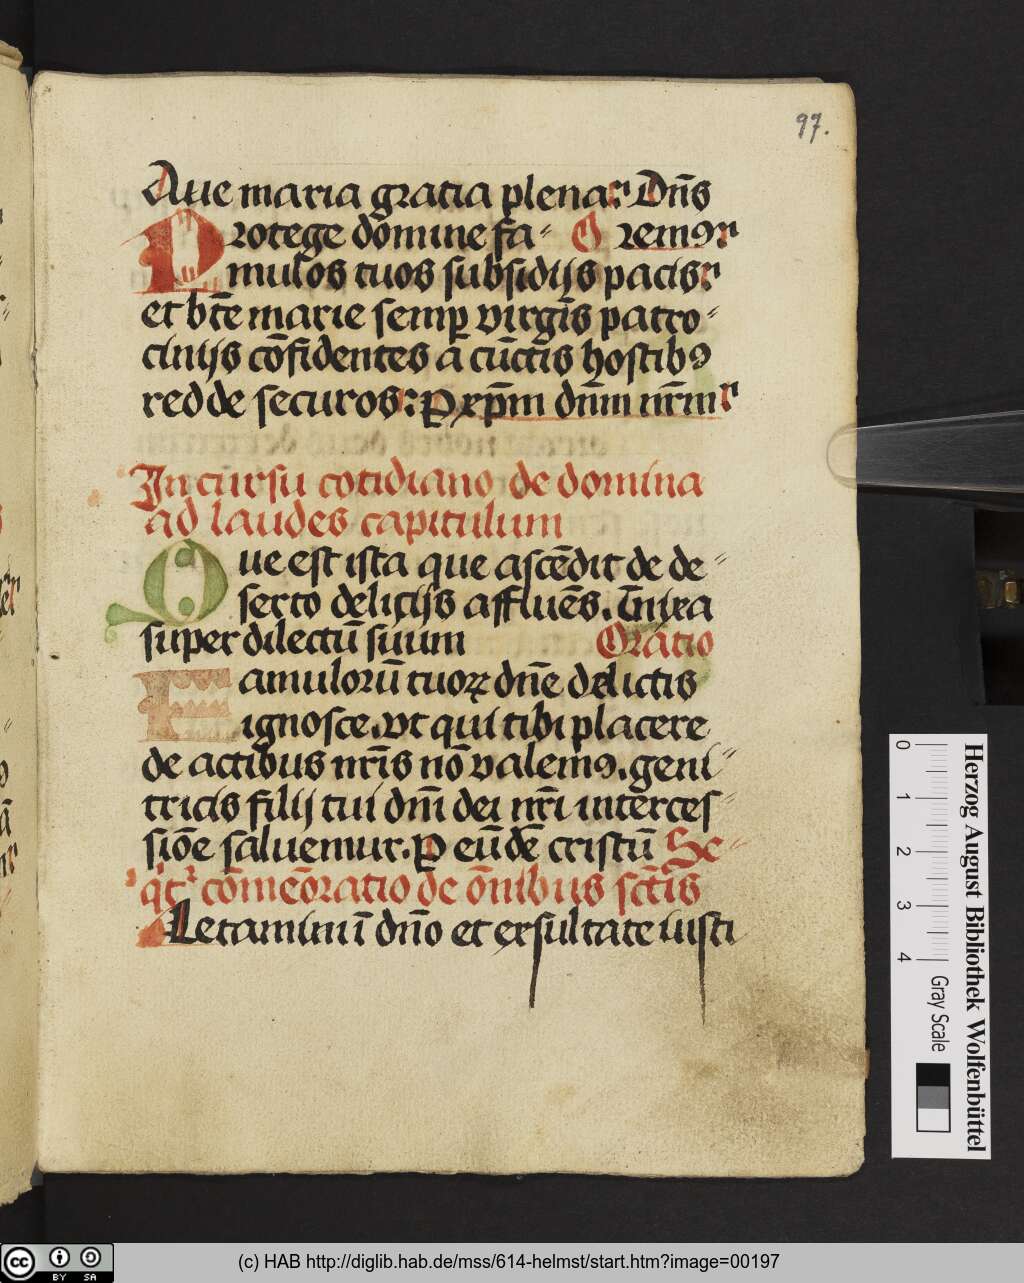 97.
Aue maria gratia plena: Dn̄s
Protege dōmine fa- Oremꝯ
mulos tuos subsidijs pacis:
et bt̄e marie semꝑ virgīs patro-
cinijs cōfidentes a cūctīs hostibꝯ
redde securos: P xp̄m dn̄m nr̄m
In cursu cotidiano de domina
ad laudes capitulum
Que est ista que ascēdit de de-
serto delicijs affluēs. īnixa
super dilectū suum Oratio
Famulorū tuoꝝ dn̄e delictis
ignosce. vt qui tibi placere
de actibus nr̄is nō valemꝯ. geni-
tricis filij tui dn̄i dei nr̄i interces-
siōe saluemur. P eūdē cristū Se-
q̇tʳ cōmeōratio de ōnibus sct̄is
Letamini ī dn̄o et exsultate iusti
Herzog August Bibliothek Wolfenbüttel
0 1 2 3 4 Gray Scale
cc BY SA
(c) HAB http://diglib.hab.de/mss/614-helmst/start.htm?image=00197